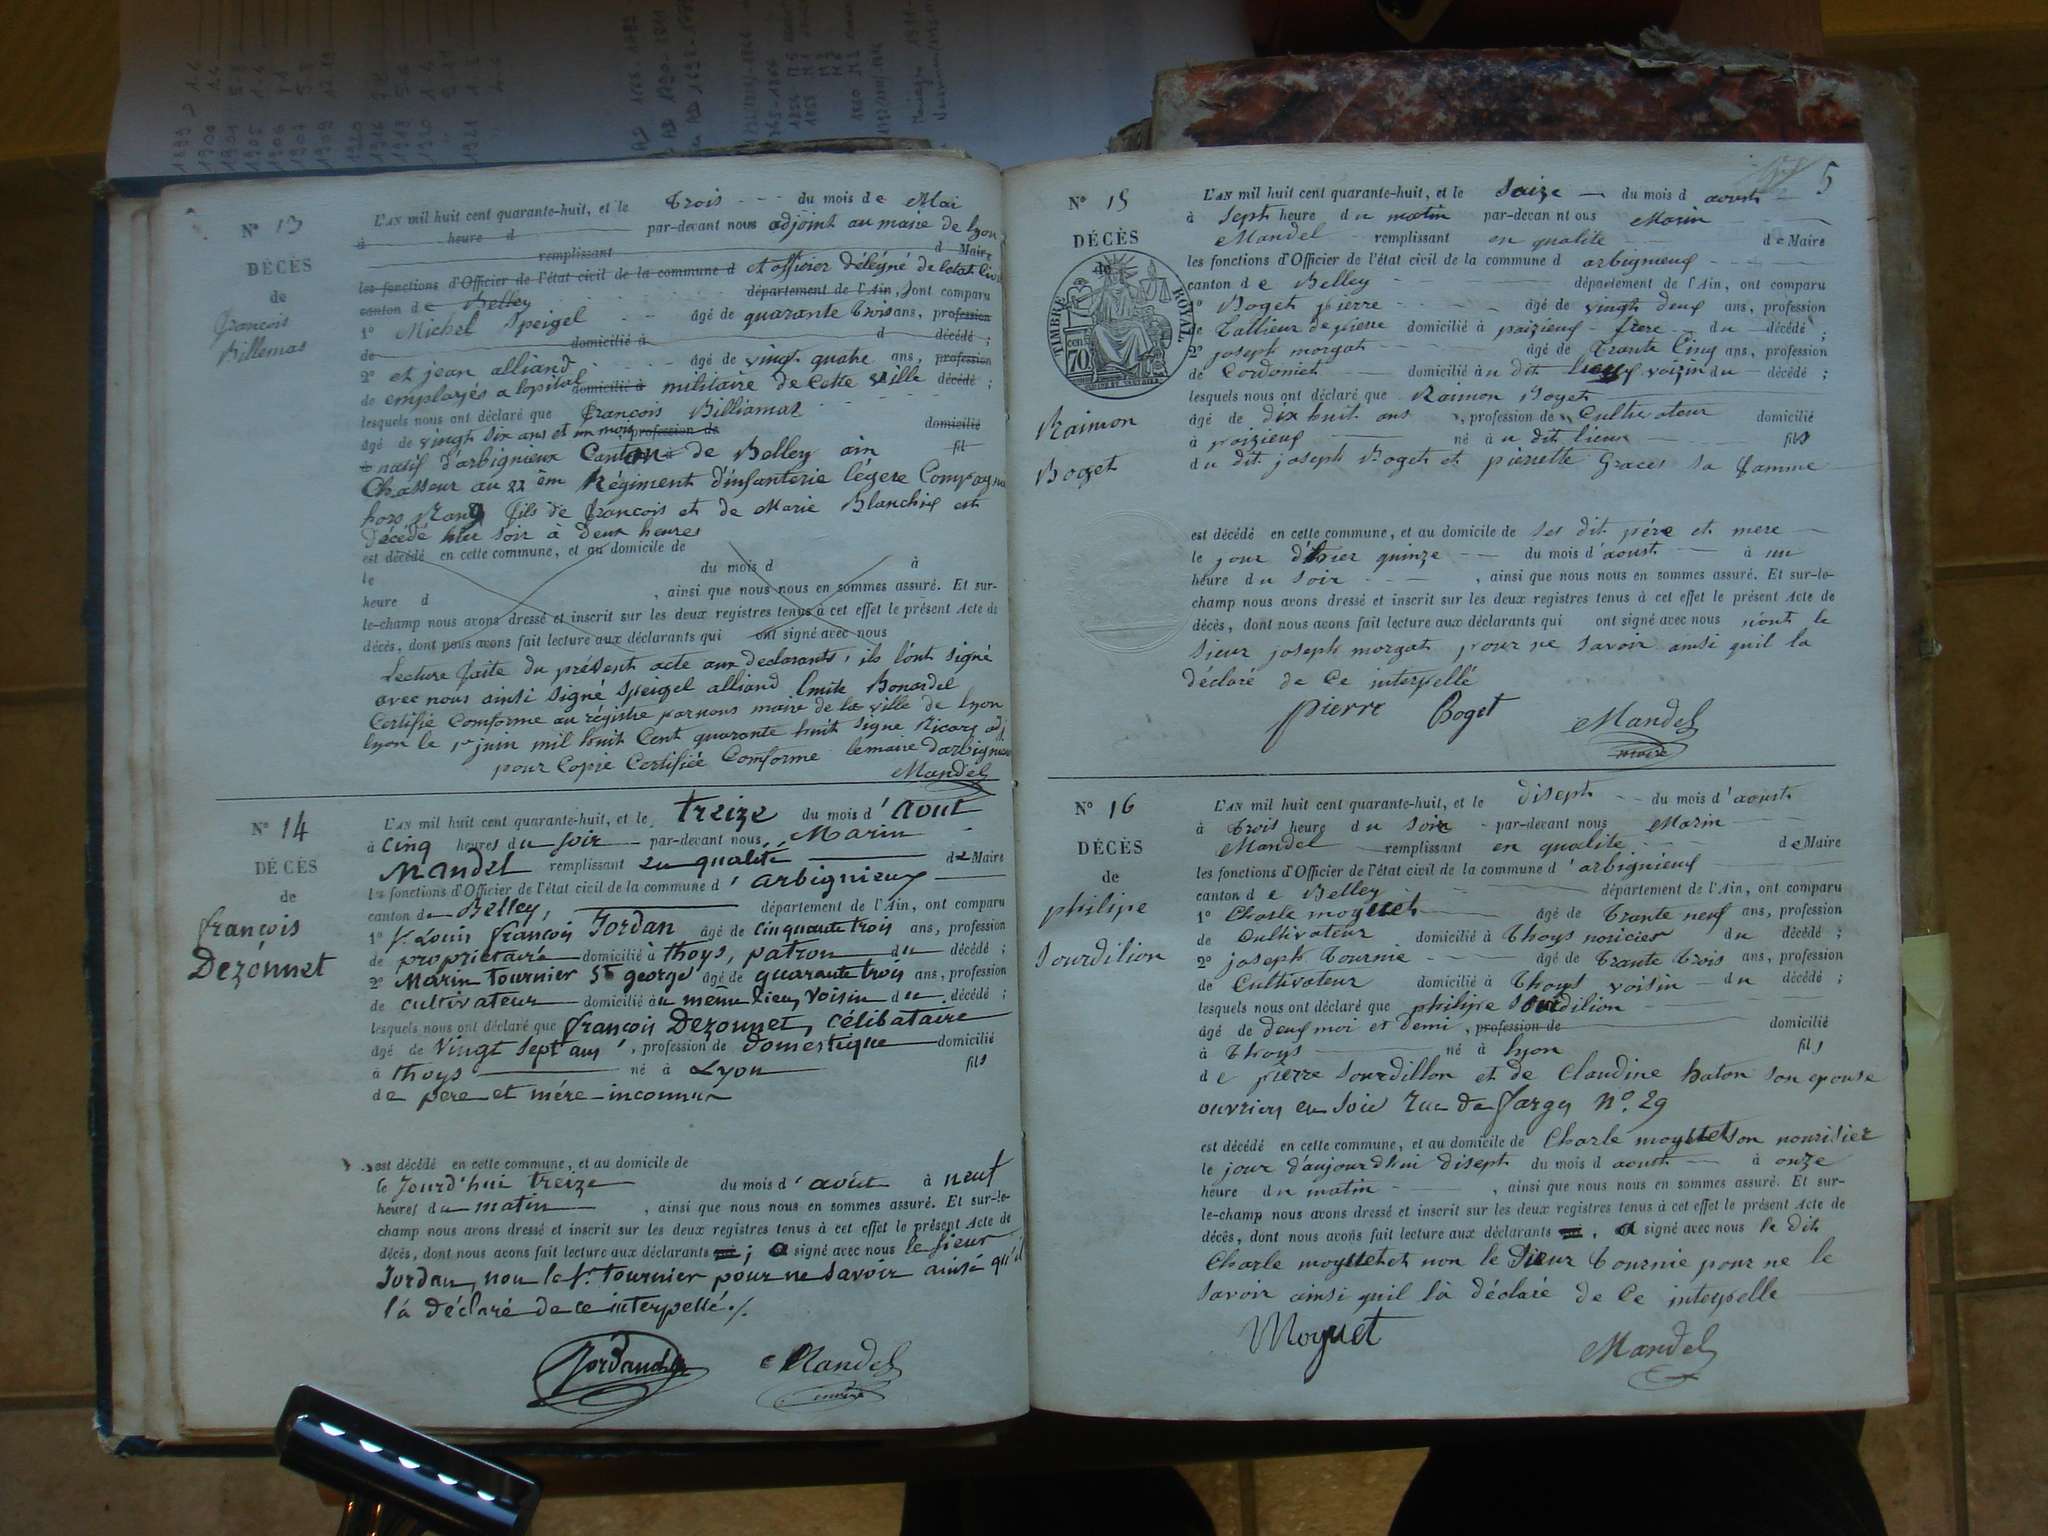 N° 13
DÉCÈS
de
françois
Billemas
L'AN mil huit cent quarante-huit, et le trois du mois de Mai
à heure d par-devant nous adjoint au maire de lyon
remplissant d Maire
les fonctions d'Officier de l'état civil de la commune d et officier délégué de letat Civil
canton de Belley département de l'Ain, sont comparu
1° Michel Speigel âgé de quarante trois ans, profession
de domicilié à d décédé ;
2° et jean alliand âgé de vingt quatre ans, profession
de employés a lopital domicilié à militaire de cette ville décédé ;
lesquels nous ont déclaré que françois Billiamas
âgé de vingt six ans et un mois profession de domicilié
à natif d'arbignieux Canton de Belley ain fil
Chasseur au 22 ém Régiment d'infanterie légere Compagnie
hors Rang fils de francois et de Marie Blanchin est
décédé hier soir à deux heures
est décédé en cette commune, et au domicile de
le du mois d à
heure d , ainsi que nous nous en sommes assuré. Et sur-
le-champ nous avons dressé et inscrit sur les deux registres tenus à cet effet le présent Acte de
décès, dont nous avons fait lecture aux déclarants qui ont signé avec nous
Lecture faite du présent acte aux declarants, ils l'ont signé
avec nous ainsi signé Speigel alliand Emile Bonardel
Certifié Comforme au régistre par nous maire de la ville de Lyon
lyon le 1er juin mil huit Cent quarante huit signe Ricary adj.
pour Copie Certifiée Comforme le maire d'arbignieu
Mandel
N° 14
DÉCÈS
de
françois
Dezonnet
L'AN mil huit cent quarante-huit, et le treize du mois d'aout
à cinq heures du soir par-devant nous, Marin
Mandel remplissant en qualité de Maire
les fonctions d'Officier de l'état civil de la commune d'arbignieux
canton de Belley, département de l'Ain, ont comparu
1° Sr. Louis françois Jordan âgé de cinquante trois ans, profession
de propriétaire domicilié à thoys, patron du décédé ;
2° Marin Tournier St george âgé de quarante trois ans, profession
de cultivateur domicilié à u même lieu, voisin du décédé ;
lesquels nous ont déclaré que françois Dezonnet, célibataire
âgé de vingt sept ans, profession de domestique domicilié
à thoys né à Lyon fils
de pere et mére inconnus
est décédé en cette commune, et au domicile de
le Jourd'hui treize du mois d'août à neuf
heures du matin , ainsi que nous nous en sommes assuré. Et sur-le-
champ nous avons dressé et inscrit sur les deux registres tenus à cet effet le présent Acte de
décès, dont nous avons fait lecture aux déclarants qui ; a signé avec nous le sieur
Jordan, non le Sr. Tournier pour ne savoir ainsi qu'il
l'a déclaré de ce interpellé ./.
Jordan
Mandel
maire
5
N° 15
DÉCÈS
de
TIMBRE ROYAL
70 cen
Raimon
Boget
L'AN mil huit cent quarante-huit, et le Saize du mois d aoust
à sept heure du matin par-devan nt ous Marin
Mandel remplissant en qualité de Maire
les fonctions d'Officier de l'état civil de la commune d arbignieux
canton d e Belley département de l'Ain, ont comparu
1° Boget pierre âgé de vingt deux ans, profession
de tallieur de pierre domicilié à poizieux frere du décédé ;
2° joseph morgat âgé de trante Cinq ans, profession
de Cordoniet domicilié à u dit lieux voizin du décédé ;
lesquels nous ont déclaré que Raimon Boget
âgé de dix huit ans , profession de Cultivateur domicilié
à poizieux né à u dit lieux fils
du dit joseph Boget et pierrette Graces sa famme
est décédé en cette commune, et au domicile de ses dit pére et mere
le jour d'hier quinze du mois d'aoust à un
heure du soir , ainsi que nous nous en sommes assuré. Et sur-le-
champ nous avons dressé et inscrit sur les deux registres tenus à cet effet le présent Acte de
décès, dont nous avons fait lecture aux déclarants qui ont signé avec nous n'ont le
sieur joseph morgat pour ne savoir ainsi quil la
déclaré de Ce interpellé
pierre Boget
Mandel
maire
N° 16
DÉCÈS
de
philipe
Sourdilion
L'AN mil huit cent quarante-huit, et le disept du mois d'aoust
à trois heure du soire par-devant nous Marin
Mandel remplissant en qualité de Maire
les fonctions d'Officier de l'état civil de la commune d'arbignieux
canton d e Belley département de l'Ain, ont comparu
1° Charle moyuet âgé de trante neuf ans, profession
de Cultivateur domicilié à Thoys noricier du décédé ;
2° joseph tournie âgé de trante trois ans, profession
de Cultivateur domicilié à Thoys voisin du décédé ;
lesquels nous ont déclaré que philipe Sourdilion
âgé de deux moi et demi , profession de domicilié
à Thoys né à lyon fils
d e pierre Sourdillon et de Claudine baton son epouse
ouvriers en soie rue de fargy N°. 29
est décédé en cette commune, et au domicile de Charle moyuet son nourisier
le jour d'aujourd'hui disept du mois d aoust à onze
heure du matin , ainsi que nous nous en sommes assuré. Et sur-
le-champ nous avons dressé et inscrit sur les deux registres tenus à cet effet le présent Acte de
décès, dont nous avons fait lecture aux déclarants qui , a signé avec nous le dit
Charle moyuet et non le Sieur tournie pour ne le
savoir ainsi quil là déclaré de Ce interpelle
Moyuet
Mandel